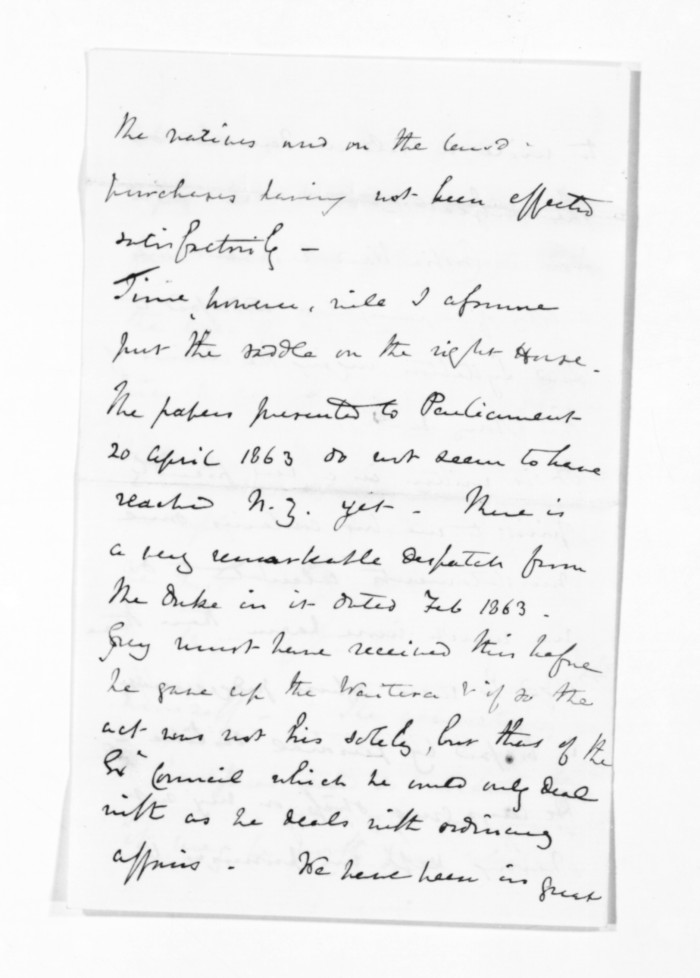 the natives and on the land-
purchases having not been effected
satisfactorily —
Time, however, will I assume
put the saddle on the right Horse.
The papers presented to Parliament
20 April 1863 do not seem to have
reached N.Z. yet - There is
a very remarkable despatch from
the Duke in it dated Feb 1863.
Grey must have received this before
he gave up the Waitera & if so the
act was not his solely, but that of the
Exn Council which he could only deal
with as he deals with ordinary
affairs - We have been in great